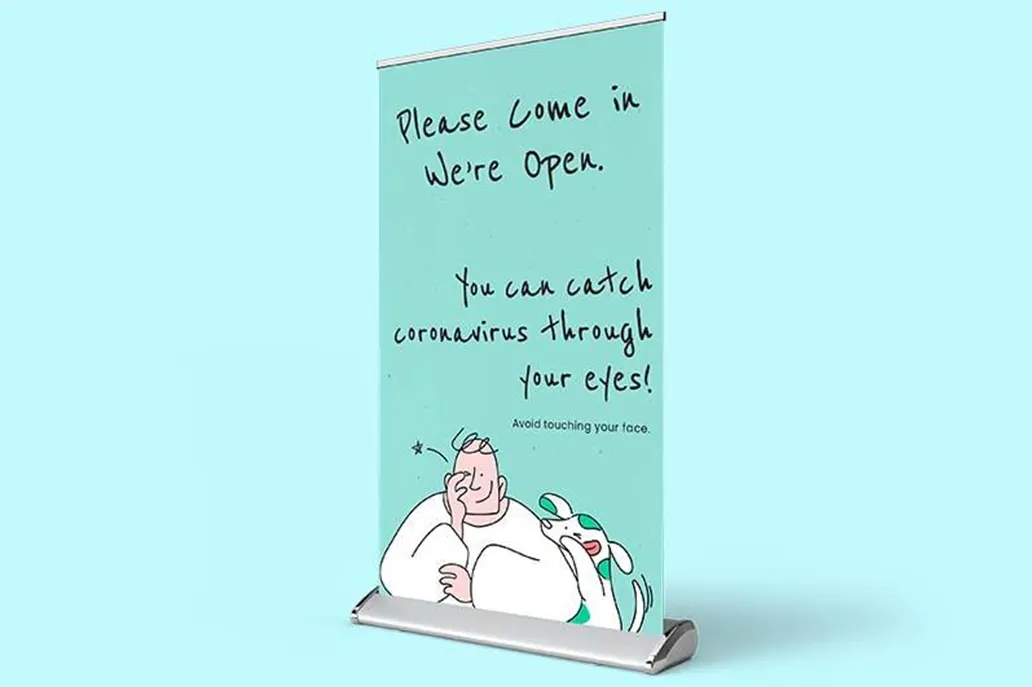 Please Come in
We're Open.
You can catch
coronavirus through
your eyes!
Avoid touching your face.